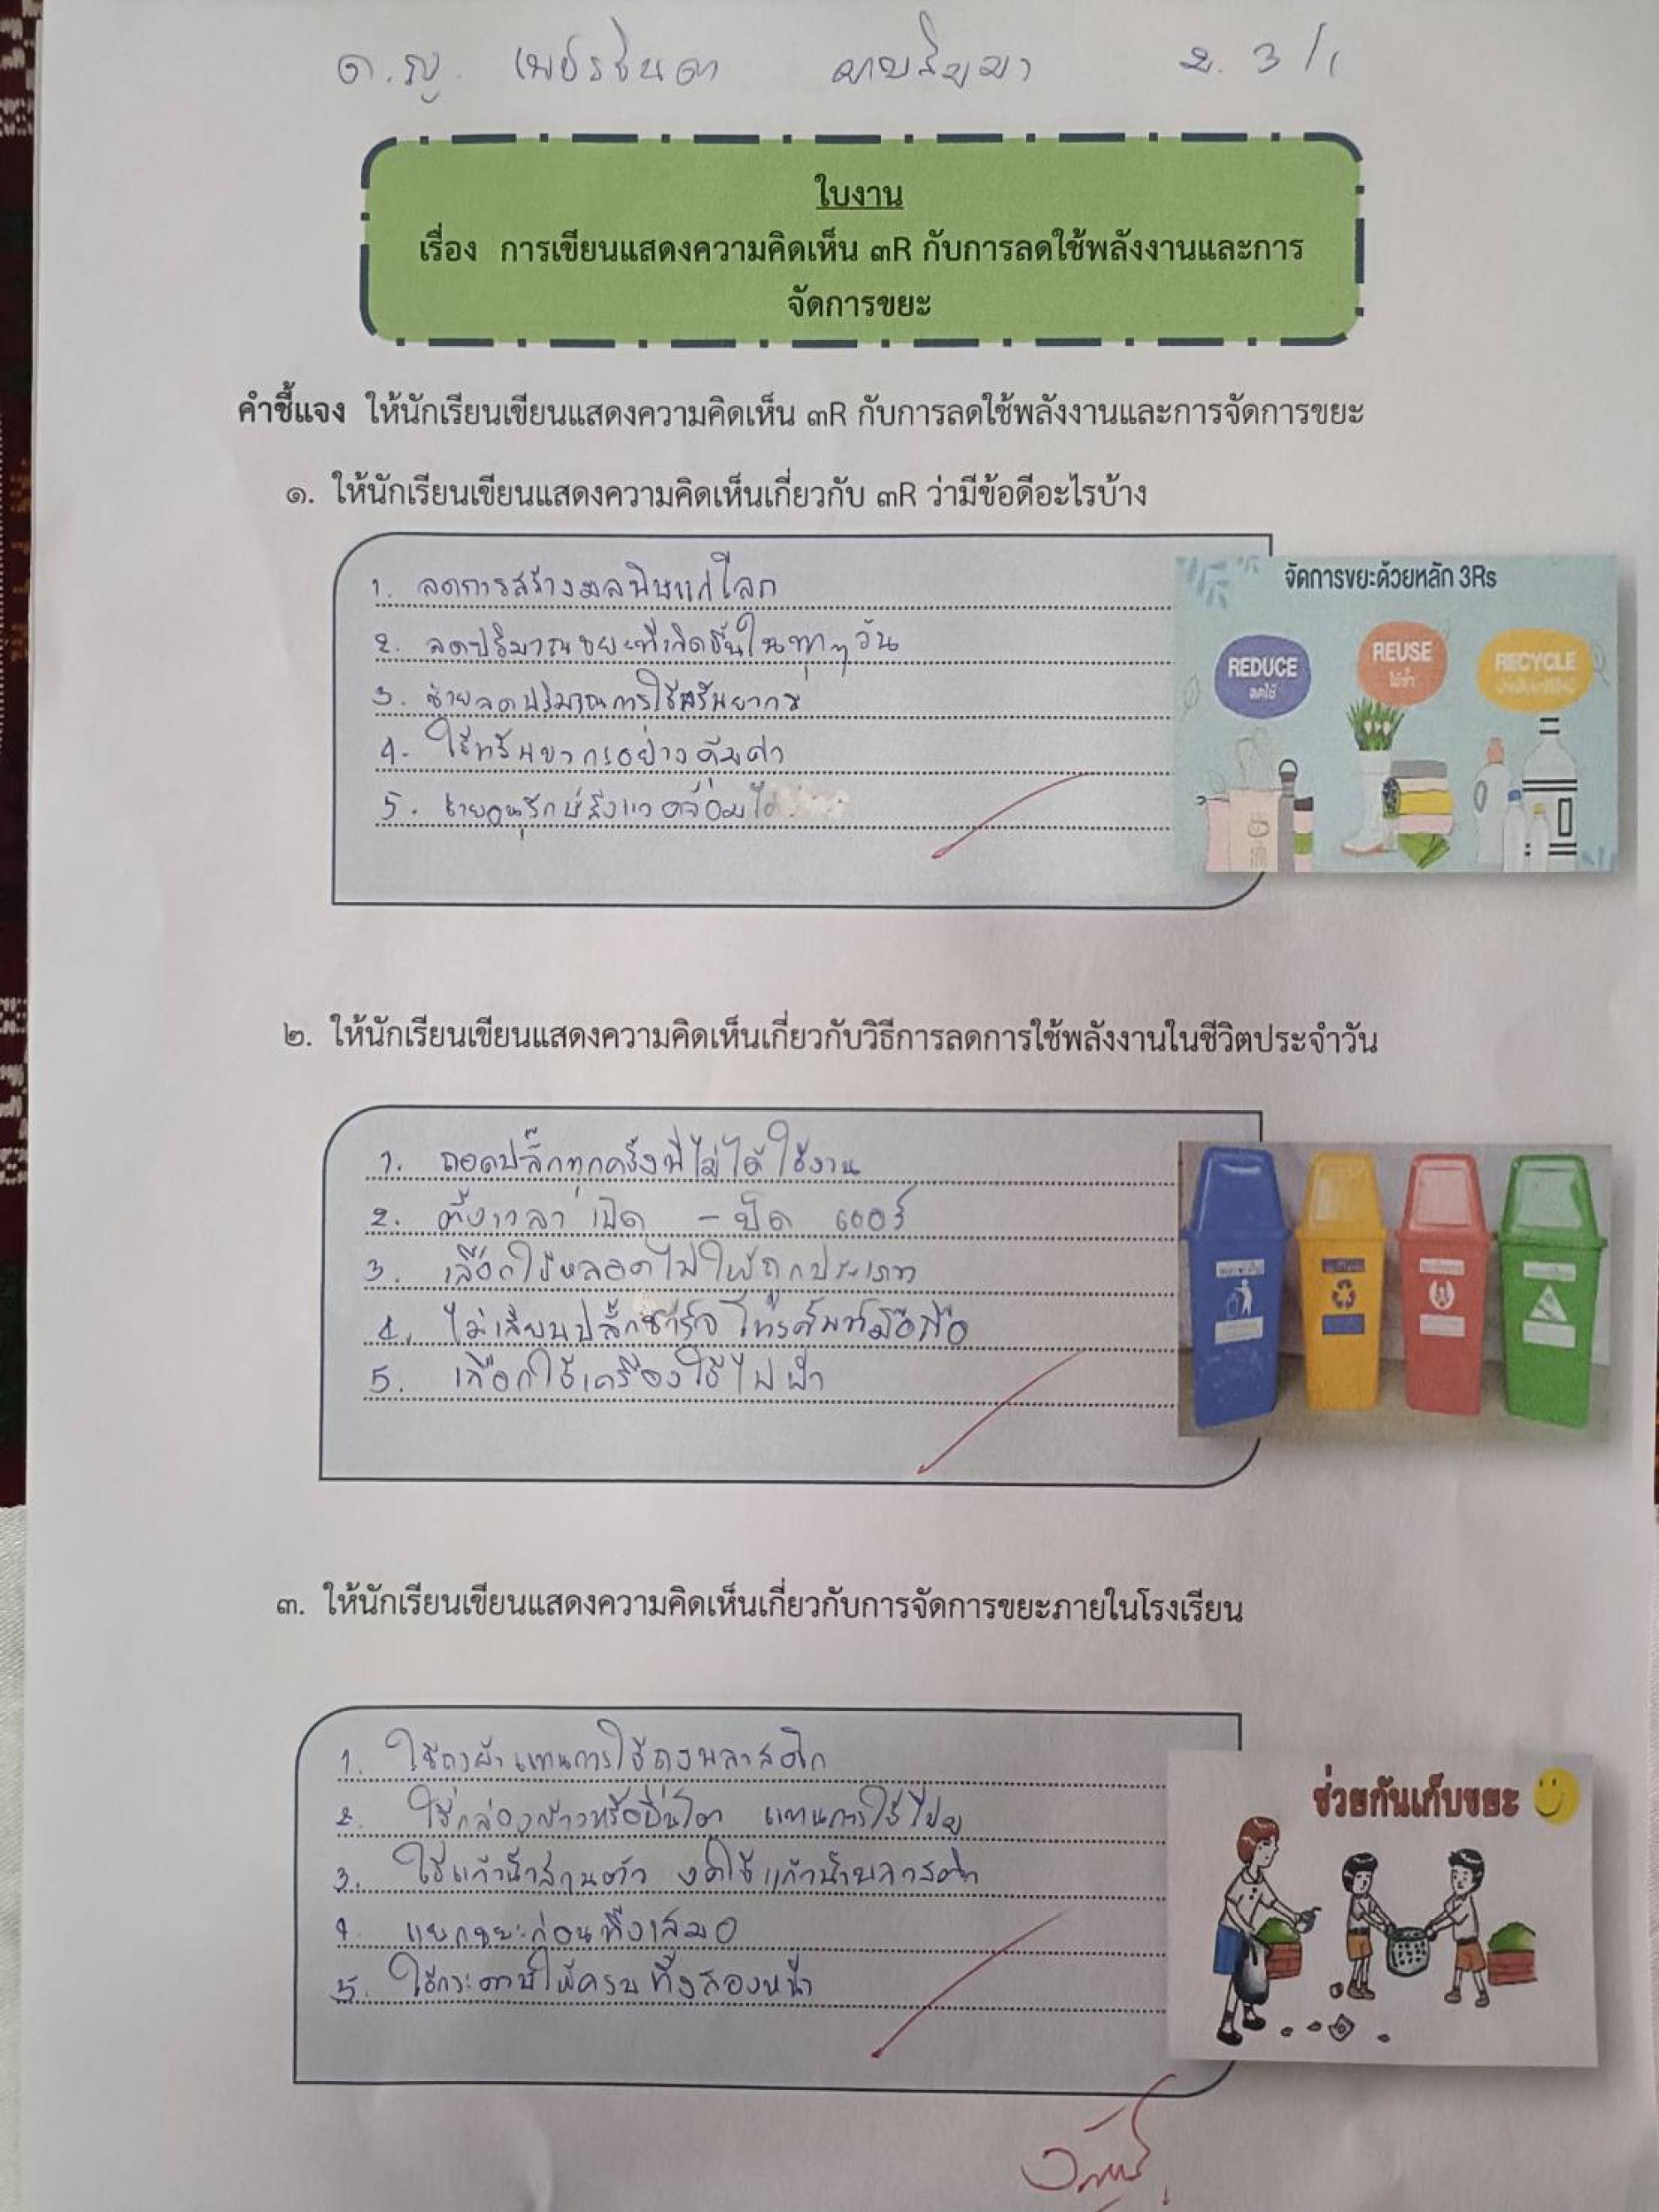 ด.ญ. เพชรจินดา ม. 3/1
ใบงาน
เรื่อง การเขียนแสดงความคิดเห็น ๓R กับการลดใช้พลังงานและการ
จัดการขยะ
คำชี้แจง ให้นักเรียนเขียนแสดงความคิดเห็น ๓R กับการลดใช้พลังงานและการจัดการขยะ
๑. ให้นักเรียนเขียนแสดงความคิดเห็นเกี่ยวกับ ๓R ว่ามีข้อดีอะไรบ้าง
1. ลดการสร้างมลพิษแก่โลก
2. ลดปริมาณขยะที่เกิดขึ้นในทุกๆวัน
3. ช่วยลดปริมาณการใช้ทรัพยากร
4. ใช้ทรัพยากรอย่างคุ้มค่า
5. ช่วยอนุรักษ์สิ่งแวดล้อมได้
จัดการขยะด้วยหลัก 3Rs
REDUCE
ลดใช้
REUSE
ใช้ซ้ำ
RECYCLE
๒. ให้นักเรียนเขียนแสดงความคิดเห็นเกี่ยวกับวิธีการลดการใช้พลังงานในชีวิตประจำวัน
1. ถอดปลั๊กทุกครั้งที่ไม่ได้ใช้งาน
2. ตั้งเวลา เปิด - ปิด แอร์
3. เลือกใช้หลอดไฟให้ถูกประเภท
4. ไม่เสียบปลั๊กชาร์จโทรศัพท์มือถือ
5. เลือกใช้เครื่องใช้ไฟฟ้า
๓. ให้นักเรียนเขียนแสดงความคิดเห็นเกี่ยวกับการจัดการขยะภายในโรงเรียน
1. ใช้ถุงผ้าแทนการใช้ถุงพลาสติก
2. ใช้กล่องข้าวหรือปิ่นโต แทนการใช้โฟม
3. ใช้แก้วน้ำส่วนตัว งดใช้แก้วน้ำพลาสติก
4. แยกขยะก่อนทิ้งเสมอ
5. ใช้กระดาษให้ครบทั้งสองหน้า
ช่วยกันเก็บขยะ